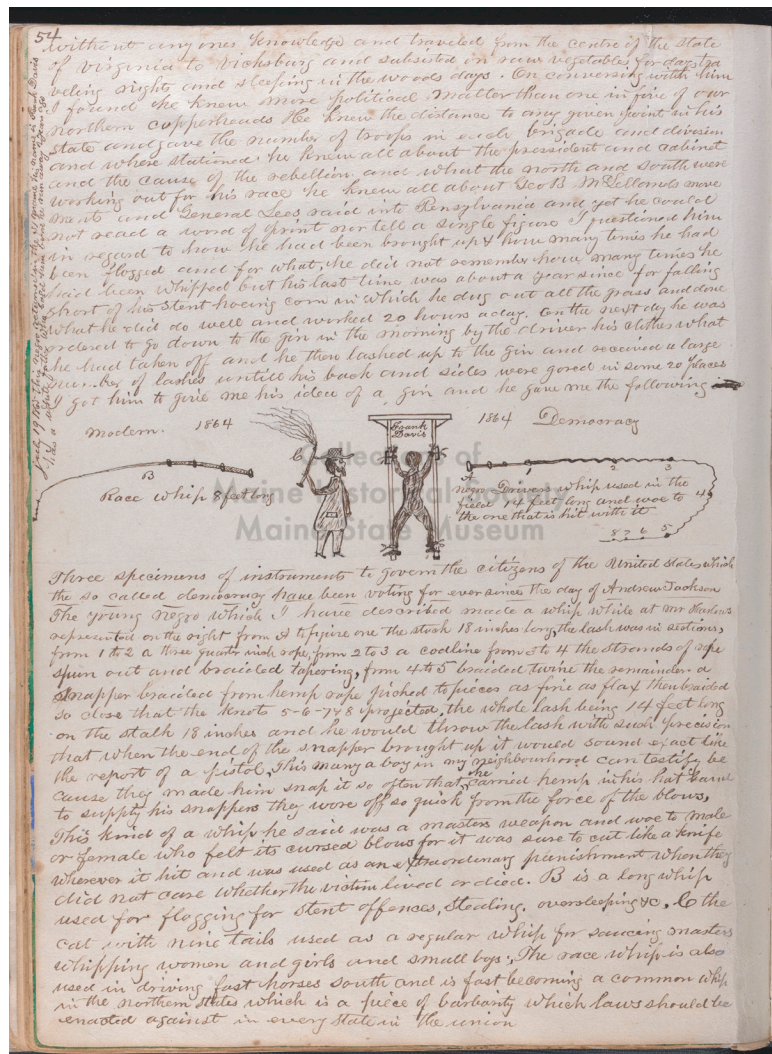 54
without any ones knowledge and traveled from the centre of the State
of Virginia to Vicksburg and subsisted on raw vegetables for days tra
veling nights and sleeping in the woods days. On conversing with him
I found he knew more political matter than one in five of our
northern copperheads He knew the distance to any given point in his
state and gave the number of troops in each brigade and division
and where stationed he knew all about the president and cabinet
and the cause of the rebellion and what the north and south were
working out for his race he knew all about Geo B McLellands move
ments and General Lees raid into Pensylvania and yet he could
not read a word of print nor tell a single figure I questioned him
in regard to how he had been brought up & how many times he had
been flogged and for what, he did not remember how many times he
had been whipped but his last time was about a year since for falling
short of his stent hoeing corn in which he dug out all the grass and done
what he did do well and worked 20 hours a day. On the next day he was
ordered to go down to the gin in the morning by the driver his clothes what
he had taken off and he then lashed up to the gin and received a large
number of lashes untill his back and sides were gored in some 20 places
I got him to give me his idea of a gin and he gave me the following
July 19 this negro his name is Frank Davis
Modern. 1864
B
Race whip 8 feet long
C
Frank
Davis
1864 Democracy
A
1
2
3
4
5
6
7
8
Driver whip used in the
field 14 feet long and woe to
the one that is hit with it
Collections of
Maine Historical Society
Maine State Museum
Three specimens of instruments to govern the citizens of the United States which
the so called democracy have been voting for ever since the day of Andrew Jackson
The young negro which I have described made a whip while at Mr
represented on the right from A to figure one the stock 18 inches long, the lash was in sections,
from 1 to 2 a three quarter inch rope, from 2 to 3 a codline from 3 to 4 the strands of rope
spun out and braided tapering, from 4 to 5 braided twine the remainder a
snapper braided from hemp rope picked to pieces as fine as flax then braided
so close that the knots 5-6-7 & 8 projected, the whole lash being 14 feet long
on the stalk 18 inches and he would throw the lash with such precision
that when the end of the snapper brought up it would sound exact like
the report of a pistol, This many a boy in my neighbourhood can testify be
cause they made him snap it so often that he carried hemp in his hat
to supply his snappers they wore off so quick from the force of the blows,
This kind of a whip he said was a masters weapon and woe to male
or female who felt its cursed blows for it was sure to cut like a knife
wherever it hit and was used as an extraordinary punishment when they
did not care whether the victim lived or died. B is a long whip
used for flogging for stent offences, stealing, oversleeping &c, C the
cat with nine tails used as a regular whip for saucing masters
whipping women and girls and small boys, The race whip is also
used in driving fast horses south and is fast becoming a common whip
in the northern states which is a piece of barbarity which laws should be
enacted against in every state in the union